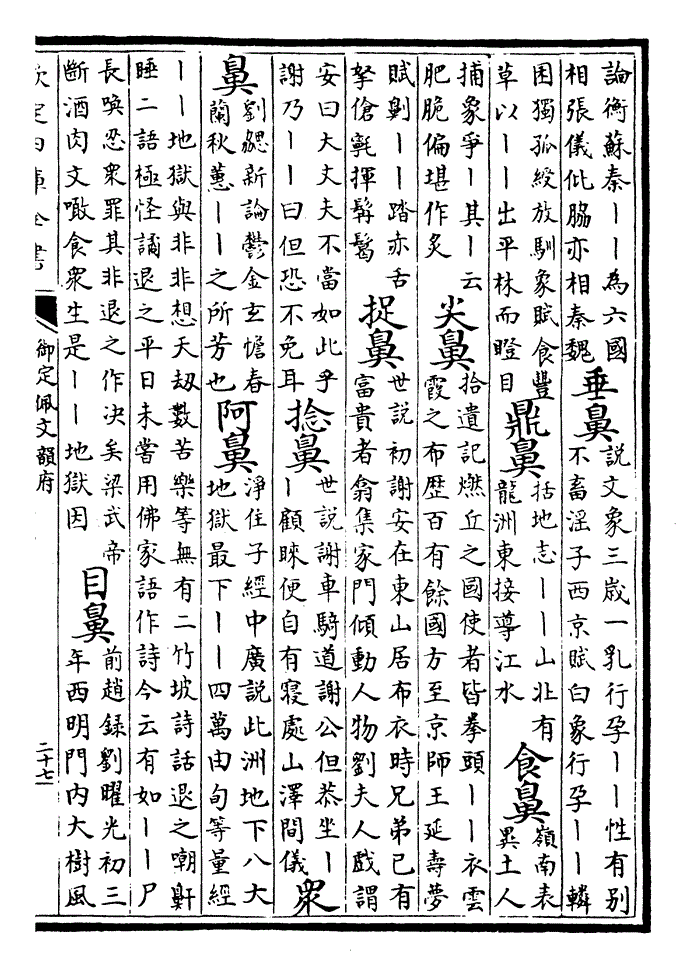 論衡蘇秦丨丨為六國
相張儀仳脇亦相秦魏
垂鼻
說文象三歳一乳行孕丨丨性有别
不畜滛子西京賦白象行孕丨丨轔
困獨孤綬放馴象賦食豐
草以丨丨出平林而瞪目
鼎鼻
括地志丨丨山北有
龍洲東接導江水
食鼻
嶺南表
異土人
捕象爭丨其丨云
肥脆偏堪作炙
尖鼻
拾遺記燃丘之國使者皆拳頭丨丨衣雲
霞之布歴百有餘國方至京師王延壽夢
賦剿丨丨踏亦舌
拏傖揮髯
捉鼻
世說初謝安在東山居布衣時兄弟已有
富貴者翕集家門傾動人物劉夫人戯謂
安曰大丈夫不當如此乎
謝乃丨丨曰但恐不免耳
捻鼻
世說謝車騎道謝公但恭坐丨
丨顧睞便自有寝處山澤間儀
衆
鼻
劉勰新論鬱金玄憺春
蘭秋蕙丨丨之所芳也
阿鼻
淨住子經中廣說此洲地下八大
地獄最下丨丨四萬由旬等量經
丨丨地獄與非非想天刼數苦樂等無有二竹坡詩話退之嘲鼾
睡二語極怪譎退之平日未嘗用佛家語作詩今云有如丨丨尸
長喚忍衆罪其非退之作决矣梁武帝
斷酒肉文噉食衆生是丨丨地獄因
目鼻
前趙録劉曜光初三
年西明門内大樹風
欽定四庫全書
御定佩文韻府
二十七